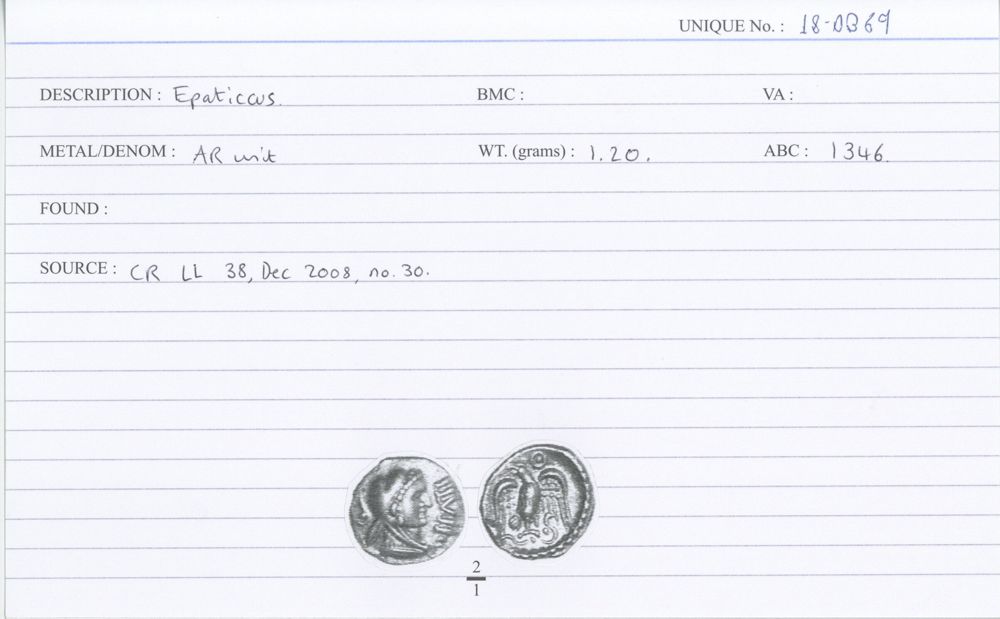 UNIQUE No. : 18-0869
DESCRIPTION : Epaticcus. BMC : VA :
METAL/DENOM : AR unit WT. (grams) : 1.20. ABC : 1346.
FOUND :
SOURCE : CR LL 38, Dec 2008, no. 30.
2
1